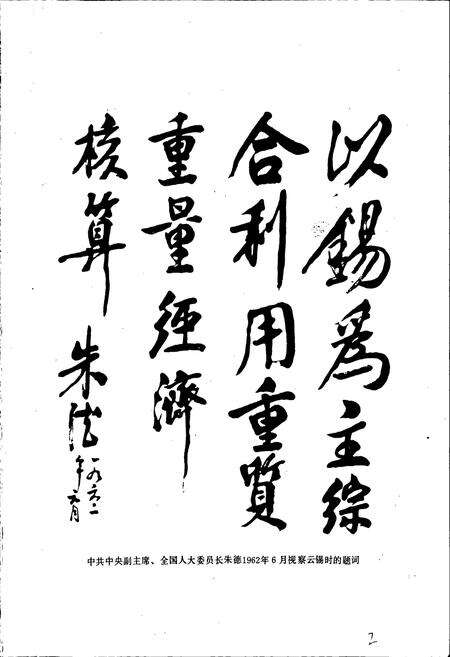 以錫為主綜
合利用重質
重量經濟
核算
朱德
一九六二
年六月
中共中央副主席、全国人大委员长朱德1962年6月视察云锡时的题词
2